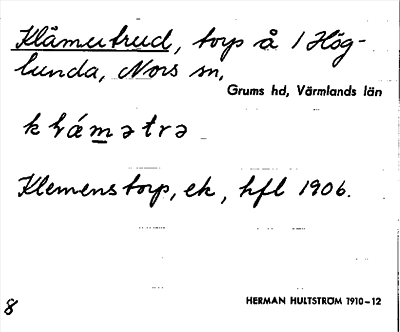 Klåmertrud, torp å 1 Hög-
lunda, Nors sn,
Grums hd, Värmlands län
Klemenstorp, ek, hfl 1906.
HERMAN HULTSTRÖM 1910–12
8